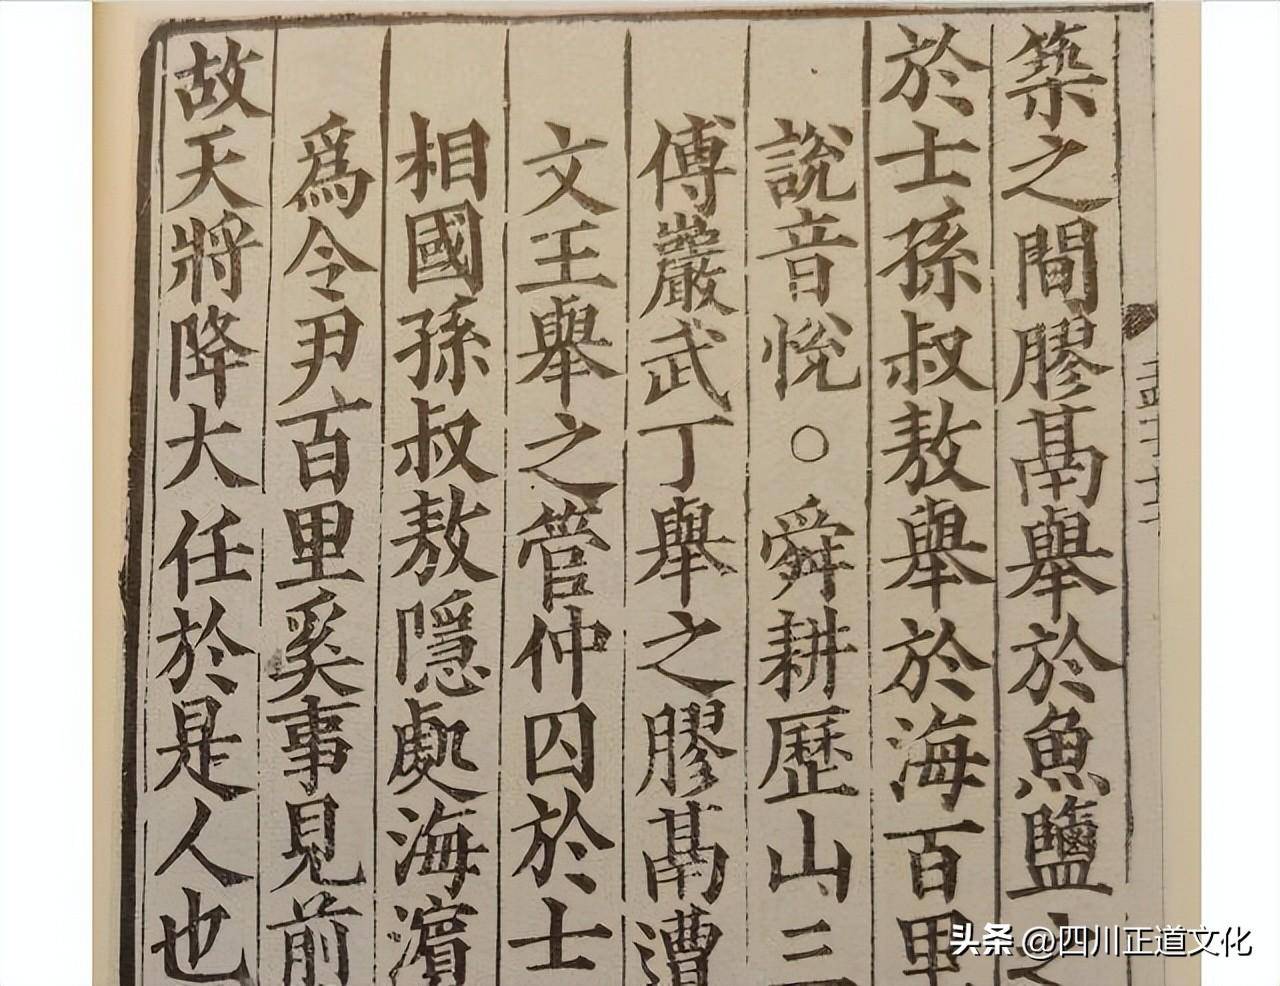 築之間膠鬲舉於魚鹽之
於士孫叔敖舉於海百里
說音悅○舜耕歷山三
傅巖武丁舉之膠鬲遭
文王舉之管仲囚於士
相國孫叔敖隱處海濱
爲令尹百里奚事見前
故天將降大任於是人也
头条 @四川正道文化